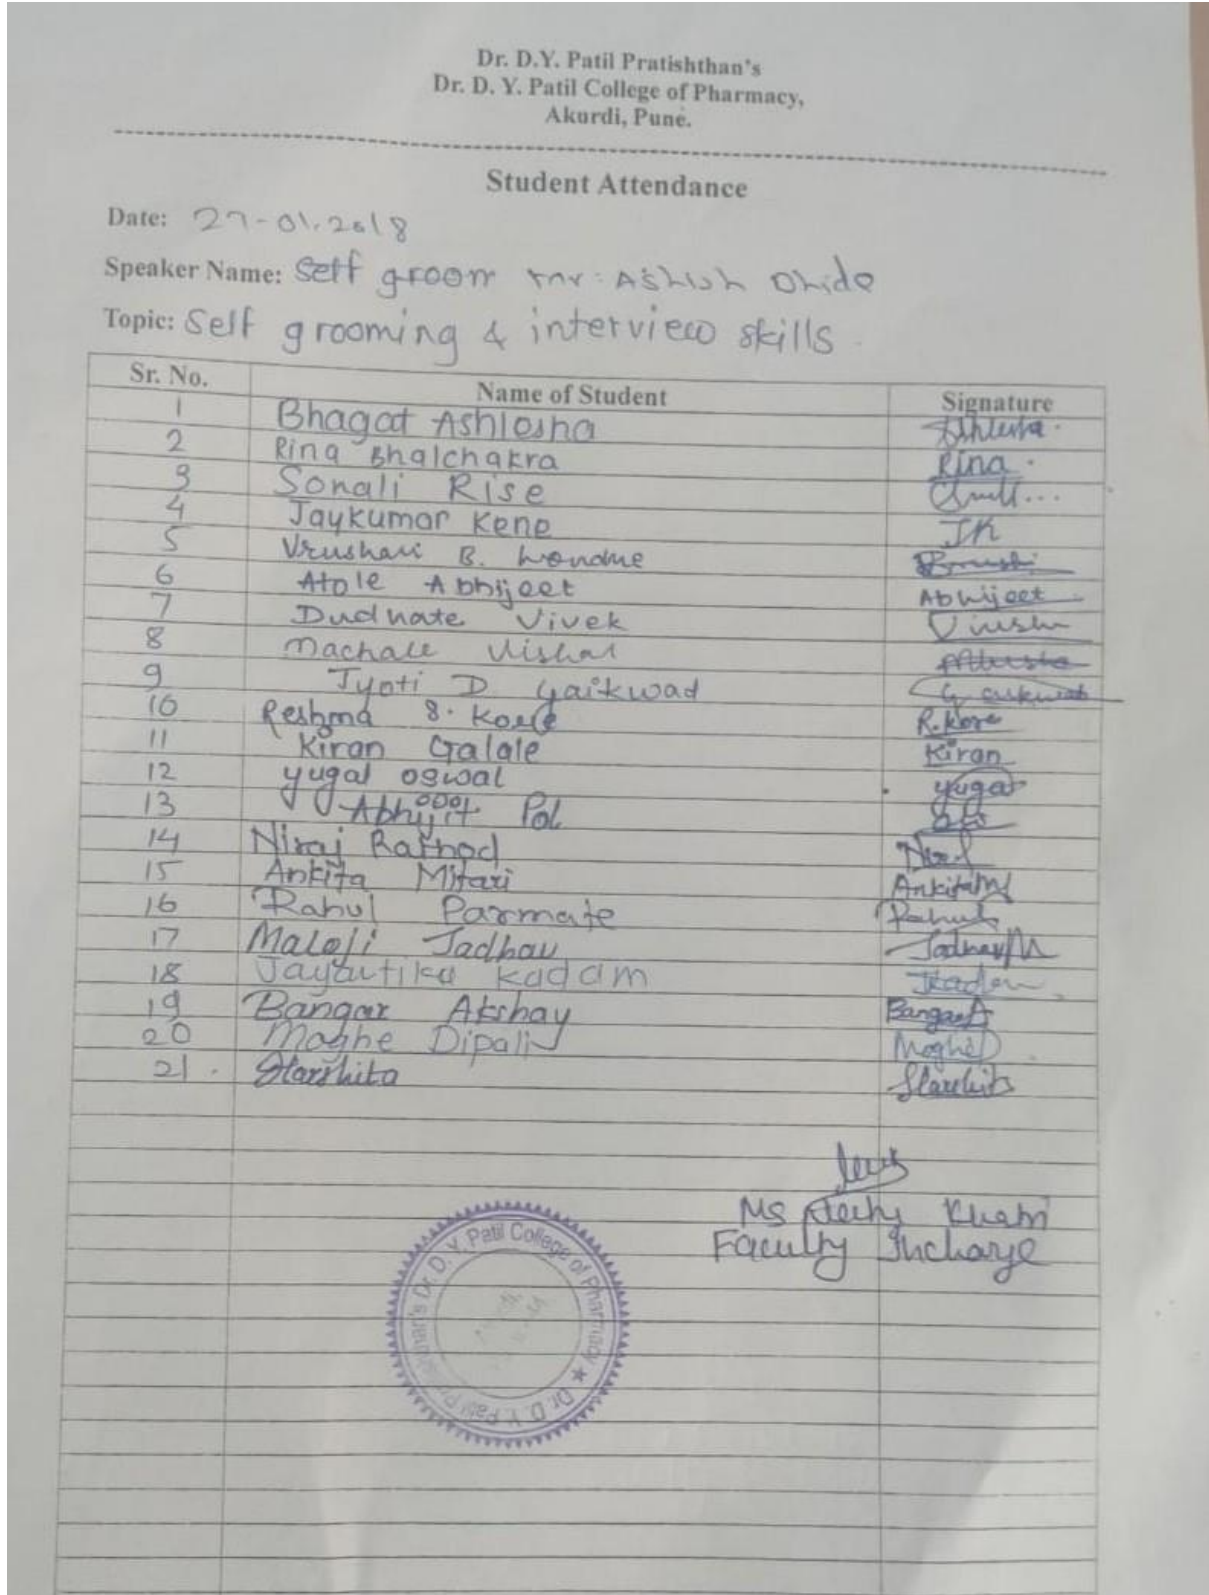 Dr. D.Y. Patil Pratishthan's
Dr. D. Y. Patil College of Pharmacy,
Akurdi, Pune.
Student Attendance
Date: 27-01.2018
Speaker Name: Self groom mr: Ashish Dhide
Topic: Self grooming & interview skills.
Sr. No. Name of Student Signature
1 Bhagat Ashlesha Ashlesha.
2 Rina Bhalchakra Rina.
3 Sonali Rise
4 Jaykumar Kene JK
5 Vrushali B.
6 Atole Abhijeet Abhijeet
7 Dudhate Vivek
8 Machale Vishal
9 Jyoti D. Gaikwad Gaikwad
10 Reshma S. Kore R.Kore
11 Kiran Galale Kiran
12 yugal oswal yugal
13 Abhijit Pol
14 Niraj Rathod
15 Ankita Mitari AnkitaM
16 Rahul Parmate Rahul
17 Maloji Jadhav JadhavM
18 Jayautika Kadam Jkadam
19 Bangar Akshay BangarA
20 Moghe Dipali MogheD
21. Harshita Harshita
Ms Kham
Faculty Incharge
Dr. D. Y. Patil College of Pharmacy ★ Dr. D. Y. Patil Pratishthan's